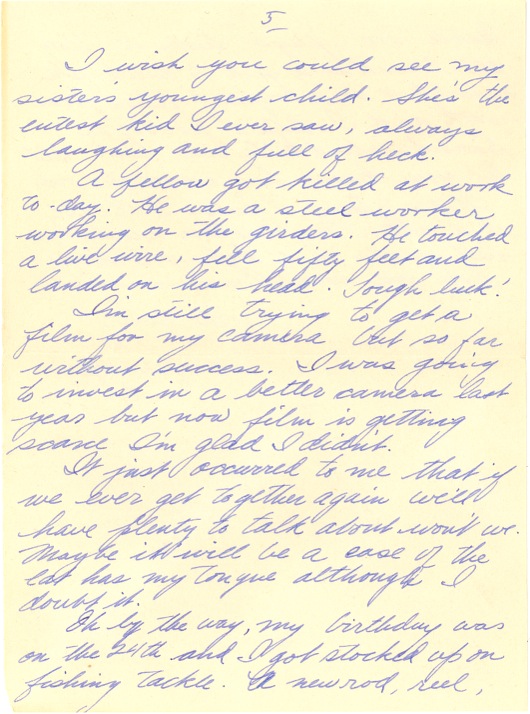 5
I wish you could see my
sister's youngest child. She's the
cutest kid I ever saw, always
laughing and full of heck.
A fellow got killed at work
to-day. He was a steel worker
working on the girders. He touched
a live wire, fell fifty feet and
landed on his head. Tough luck!
I'm still trying to get a
film for my camera but so far
without success. I was going
to invest in a better camera last
year but now film is getting
scarce I'm glad I didn't.
It just occurred to me that if
we ever get together again we'll
have plenty to talk about won't we.
Maybe it will be a case of the
cat has my tongue although I
doubt it.
Oh by the way, my birthday was
on the 24th and I got stocked up on
fishing tackle. A new rod, reel,